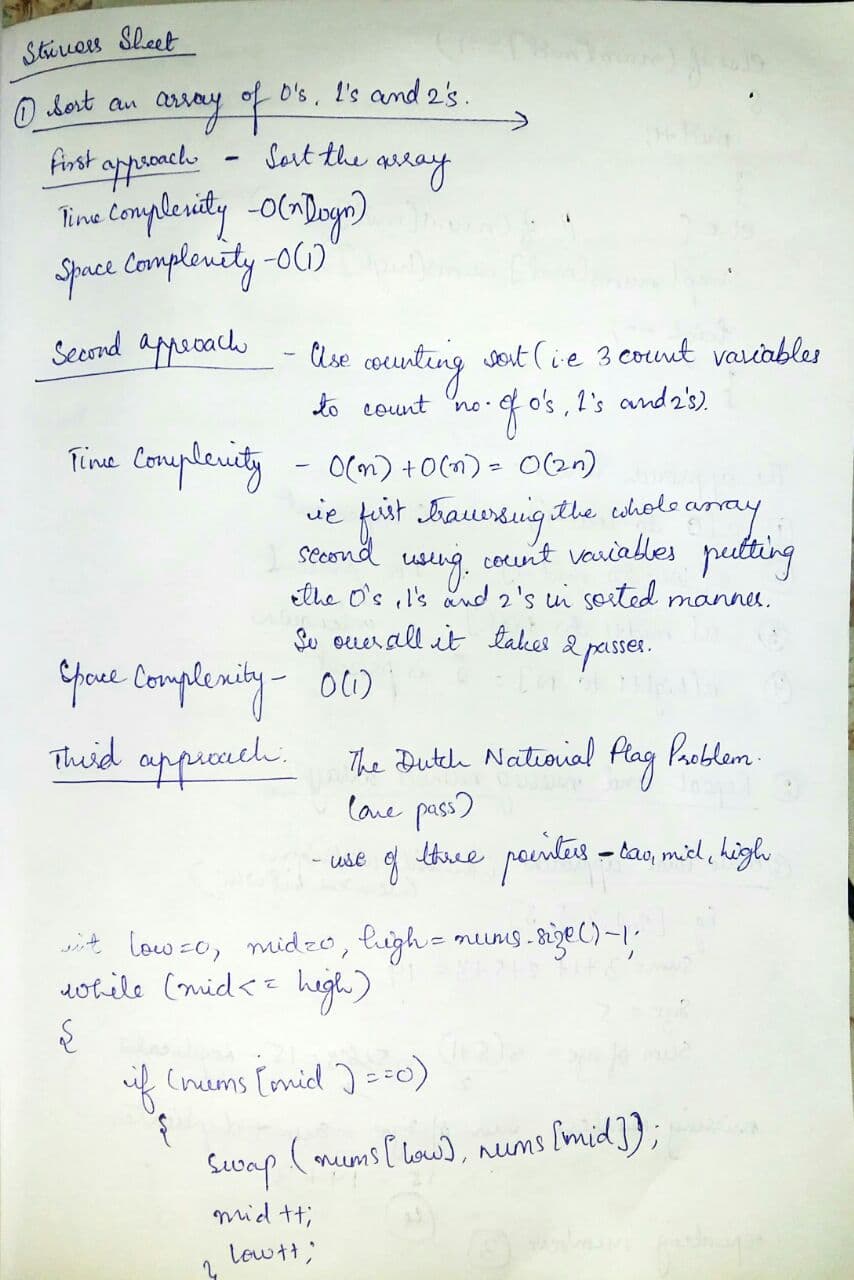 Strivers Sheet
① Sort an array of 0's, 1's and 2's.
First approach - Sort the array
Time Complexity - O(nlogn)
Space Complexity - O(1)
Second approach - Use counting sort (i.e 3 count variables
to count no. of 0's, 1's and 2's).
Time Complexity - O(n) + O(n) = O(2n)
ie first traversing the whole array
second using count variables putting
the 0's, 1's and 2's in sorted manner.
So over all it takes 2 passes.
Space Complexity - O(1)
Third approach. The Dutch National Flag Problem.
(one pass)
- use of three pointers - low, mid, high
int low=0, mid=0, high = nums.size()-1;
while (mid<= high)
{
if (nums[mid]==0)
{
swap (nums[low], nums[mid]);
mid ++;
low++;
}